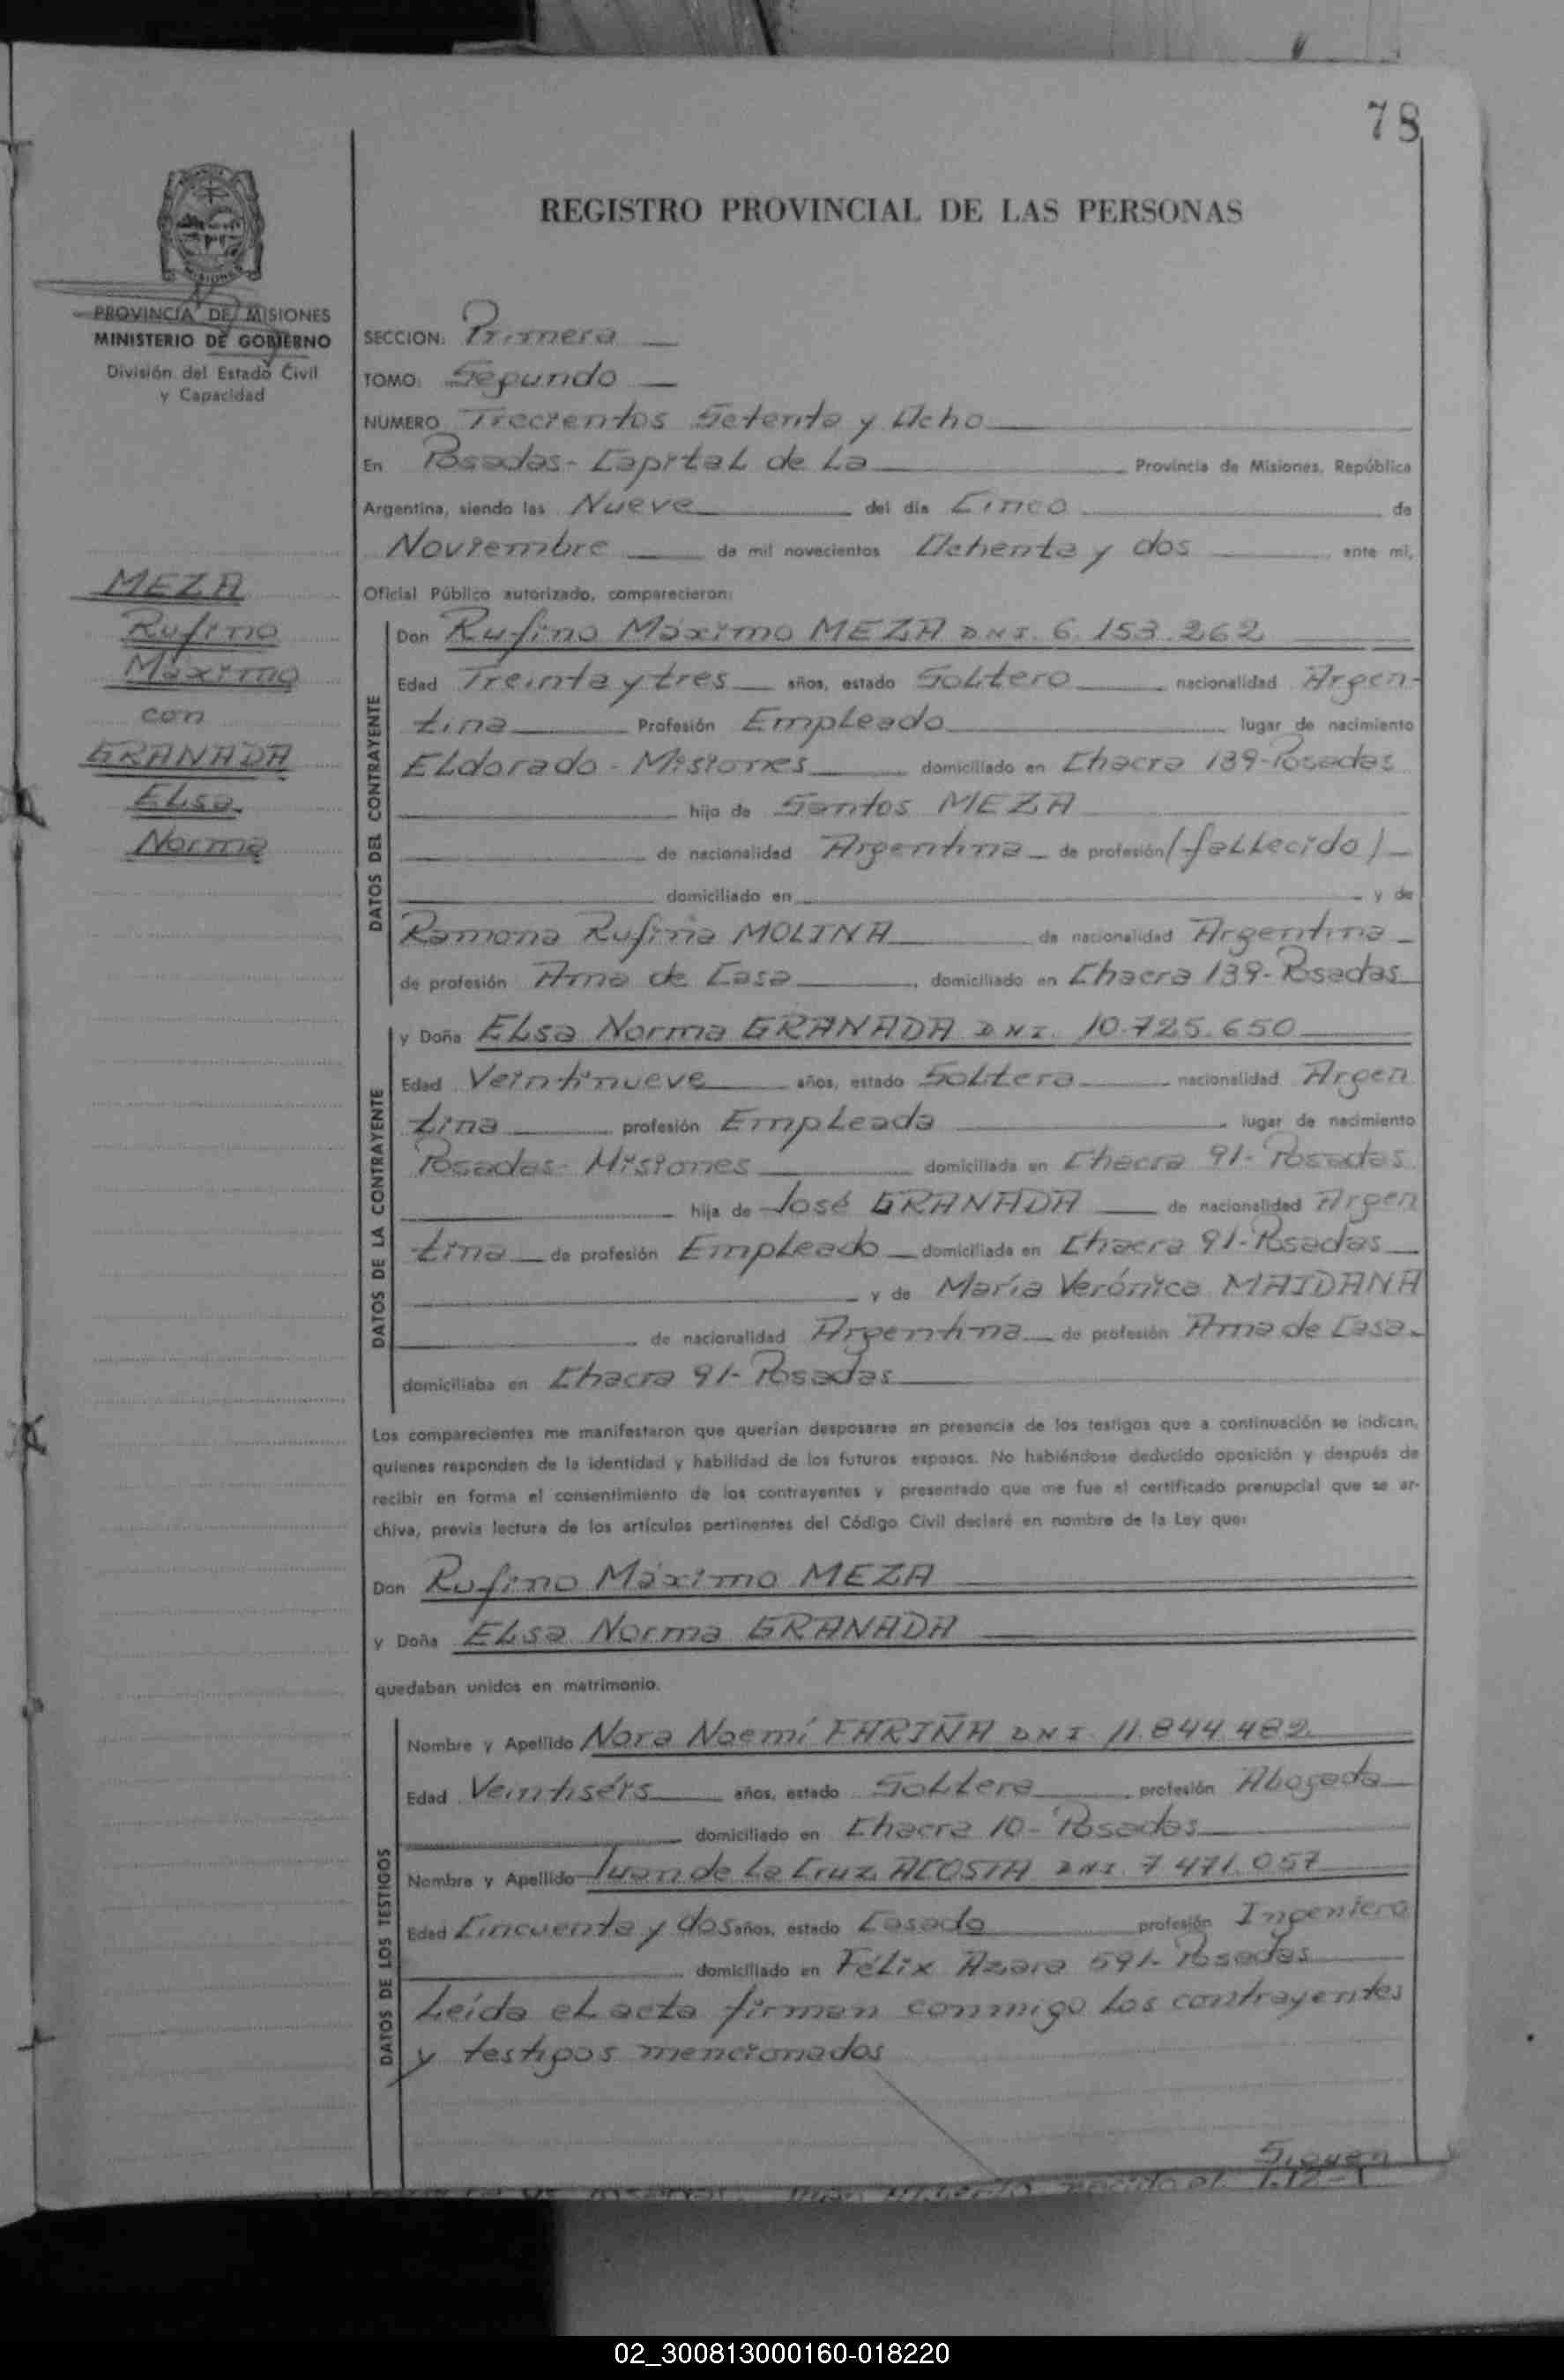 78
REGISTRO PROVINCIAL DE LAS PERSONAS
MISIONES
PROVINCIA DE MISIONES
MINISTERIO DE GOBIERNO
División del Estado Civil
y Capacidad
MEZA
Rufino
Máximo
con
GRANADA
Elsa
Norma
SECCION: Primera
TOMO: Segundo
NUMERO Trecientos Setenta y Ocho
En Posadas - Capital de La Provincia de Misiones, República
Argentina, siendo las Nueve del día Cinco de
Noviembre de mil novecientos Ochenta y dos ante mi,
Oficial Público autorizado, comparecieron:
DATOS DEL CONTRAYENTE
Don Rufino Máximo MEZA DNI. 6.153.262
Edad Treinta y tres años, estado Soltero nacionalidad Argen-
tina Profesión Empleado lugar de nacimiento
Eldorado - Misiones domiciliado en Chacra 139-Posadas
hijo de Santos MEZA
de nacionalidad Argentina de profesión (fallecido)
domiciliado en y de
Ramona Rufina MOLINA de nacionalidad Argentina
de profesión Ama de Casa, domiciliado en Chacra 139-Posadas
DATOS DE LA CONTRAYENTE
y Doña Elsa Norma GRANADA DNI. 10.725.650
Edad Veintinueve años, estado Soltera nacionalidad Argen
tina profesión Empleada lugar de nacimiento
Posadas - Misiones domiciliada en Chacra 91- Posadas
hija de José GRANADA de nacionalidad Argen
tina de profesión Empleado domiciliada en Chacra 91-Posadas
y de María Verónica MAIDANA
de nacionalidad Argentina de profesión Ama de Casa.
domiciliaba en Chacra 91- Posadas
Los comparecientes me manifestaron que querían desposarse en presencia de los testigos que a continuación se indican,
quienes responden de la identidad y habilidad de los futuros esposos. No habiéndose deducido oposición y después de
recibir en forma el consentimiento de los contrayentes y presentado que me fue el certificado prenupcial que se ar-
chiva, previa lectura de los artículos pertinentes del Código Civil declaré en nombre de la Ley que:
Don Rufino Máximo MEZA
y Doña Elsa Norma GRANADA
quedaban unidos en matrimonio.
DATOS DE LOS TESTIGOS
Nombre y Apellido Nora Noemí FARIÑA DNI. 11.844.482
Edad Veintiséis años, estado Soltera profesión Abogada
domiciliado en Chacra 10 - Posadas
Nombre y Apellido Juan de La Cruz ACOSTA DNI. 7.471.057
Edad Cincuenta y dos años, estado Casado profesión Ingeniero
domiciliado en Félix Azara 591- Posadas
Leída el acta firman conmigo los contrayentes
y testigos mencionados
Siguen
02_300813000160-018220